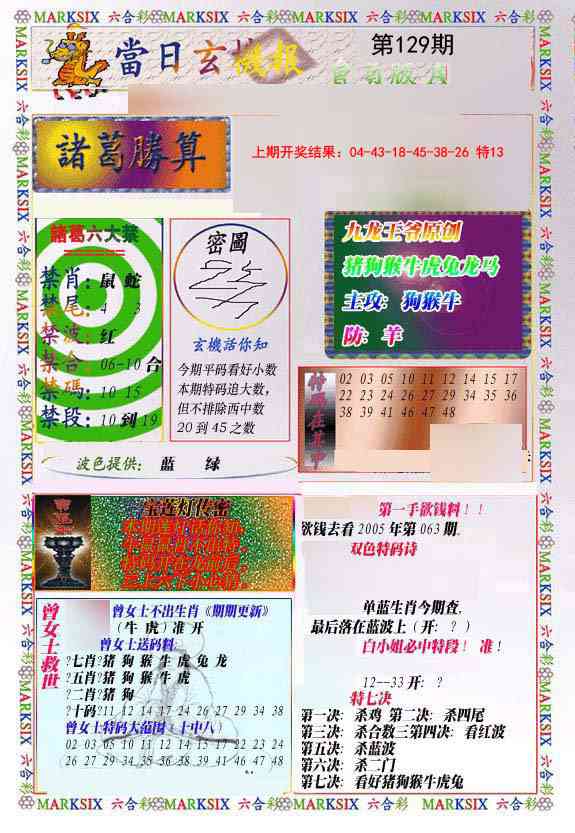 MARKSIX 六合彩 MARKSIX 六合彩 MARKSIX 六合彩 MARKSIX 六合彩
當日玄機報
第129期
諸葛勝算
上期开奖结果：04-43-18-45-38-26 特13
諸葛六大禁
禁肖：鼠 蛇
禁尾：4 3
禁波：红
禁合：06-10 合
禁碼：10 15
禁段：10 到 19
密圖
玄機話你知
今期平码看好小数
本期特码追大数，
但不排除西中数
20 到 45 之数
波色提供： 蓝 绿
九龙王爷原创
猪狗猴牛虎兔龙马
主攻：狗猴牛
防：羊
特碼在其中
02 03 05 10 11 12 14 15 17
22 23 24 26 27 29 34 35 36
38 39 41 46 47 48
宝莲灯传密
曾女士救世
曾女士不出生肖《期期更新》
（牛 虎）准 开
曾女士送码料:
?七肖?猪 狗 猴 牛 虎 兔 龙
?五肖?猪 狗 猴 牛 虎
?二肖?猪 狗
?十码?11 12 14 17 24 26 27 29 34 38
曾女士特码大范围：十中八）
02 03 05 10 11 12 14 15 17 22 23 24
26 27 29 34 35 36 38 39 41 46 47 48
第一手欲钱料！！
欲钱去看 2005 年第 063 期.
双色特码诗
单蓝生肖今期查.
最后落在蓝波上（开：？）
白小姐必中特段！ 准！
12--33 开：？
特七决
第一决：杀鸡 第二决：杀四尾
第三决：杀合数三第四决：看红波
第五决：杀蓝波
第六决：杀二门
第七决：看好猪狗猴牛虎兔
MARKSIX 六合彩 MARKSIX 六合彩 MARKSIX 六合彩 MARKSIX 六合彩